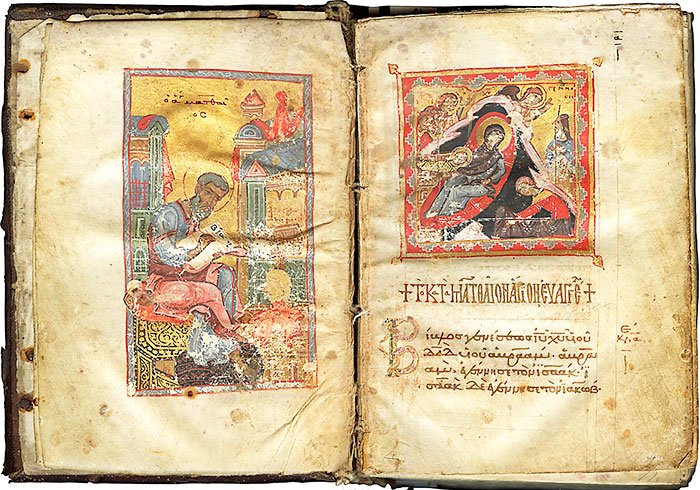 ὁ ἅ ματθαῖ
ος
ΓΕΝΝΗ
ΣΙΣ
+ Τ · Κ · Τ · ΜΑΤΘΑΙΟΝ ΑΓΙΟΝ ΕΥΑΓΓΕ +
Βίβλος γενέσεως ἰυ χυ υἱοῦ
δαδ υἱοῦ ἀβραάμ. ἀβρα
ὰμ, ἐγέννησε τὸν ἰσαάκ· ἰ
σαὰκ δὲ ἐγέννησε τὸν ἰακώβ·